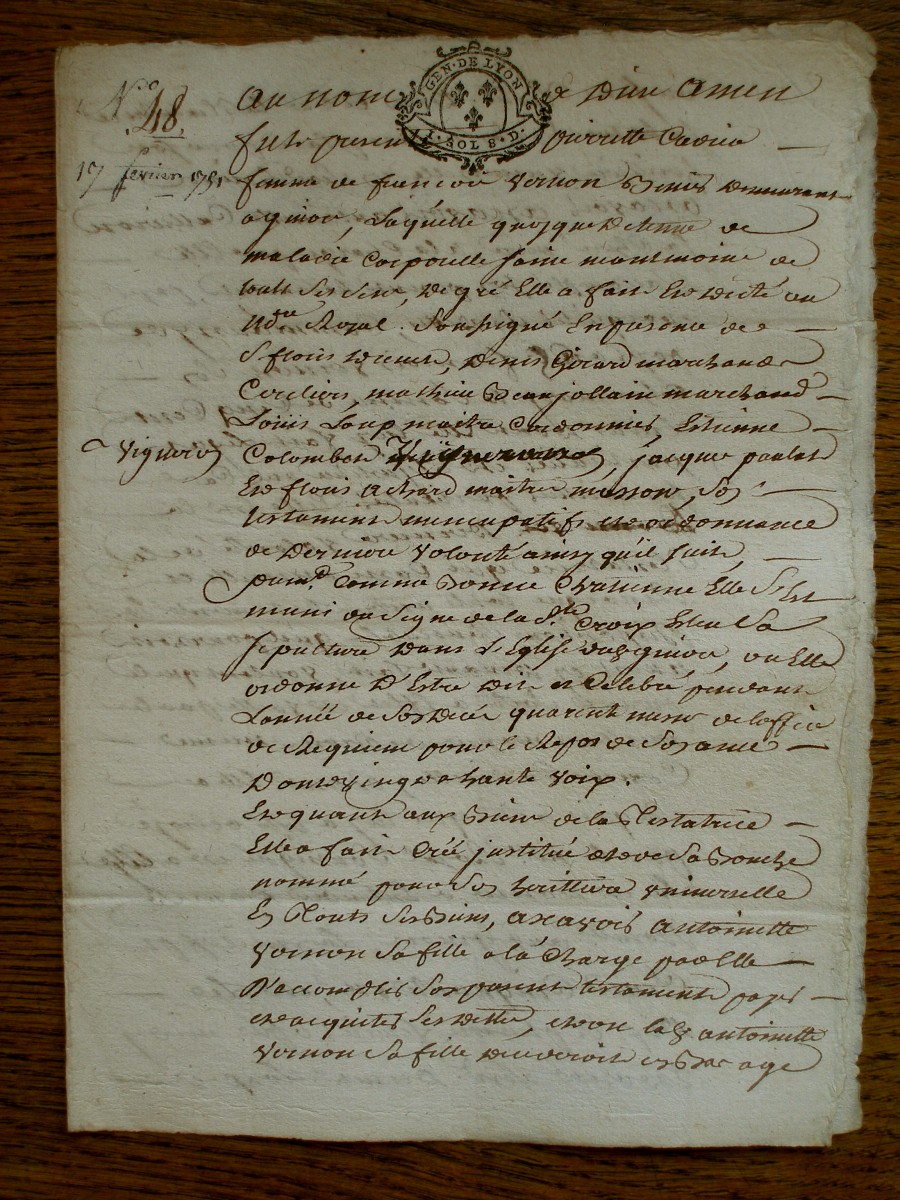 N.o 48.
17 fevrier 1751
GEN · DE LYON
SOL 8 · D ·
au nom de Dieu amen
fut presen pierrette
femme de francois vernon demeurant
a , Laquelle quoyque detenue de
maladie corporelle saine de
touts ses sens, de gré Elle a fait Ext dicté au
Nore Royal Soussigné En presence de
Sr floris , denis Girard marchand
Cordier, mathieu Beaujollain marchand
Loüis Loup maitre Cordonnier, Estienne
vigneron
Colombon , jacque
Ext floris achard maitre masson, son
testament nuncupatif Ext ordonnance
de derniere volonté ainsy qu'il suit,
premt Comme bonne Chretienne Elle s'est
muni du signe de la Ste Croix Esleu sa
sepulture dans L'Eglise , ou Elle
ordonne D'Estre dit et Celebré pendant
L'année de son decé quarente messe de l'office
de Requiem pour le Repos de son ame
dont vingt a haute voix.
Ext quant aux biens de la Testatrice
Elle a fait Créé justitué Ext de sa bouche
nommé pour son heritiere vniverselle
En Touts ses biens, ascavoir antoinette
vernon sa fille a la Charge par Elle
D'accomplir son present testament payer
Ext acquiter ses dette, Ext ou lad antoinette
vernon sa fille decederoit en bas age